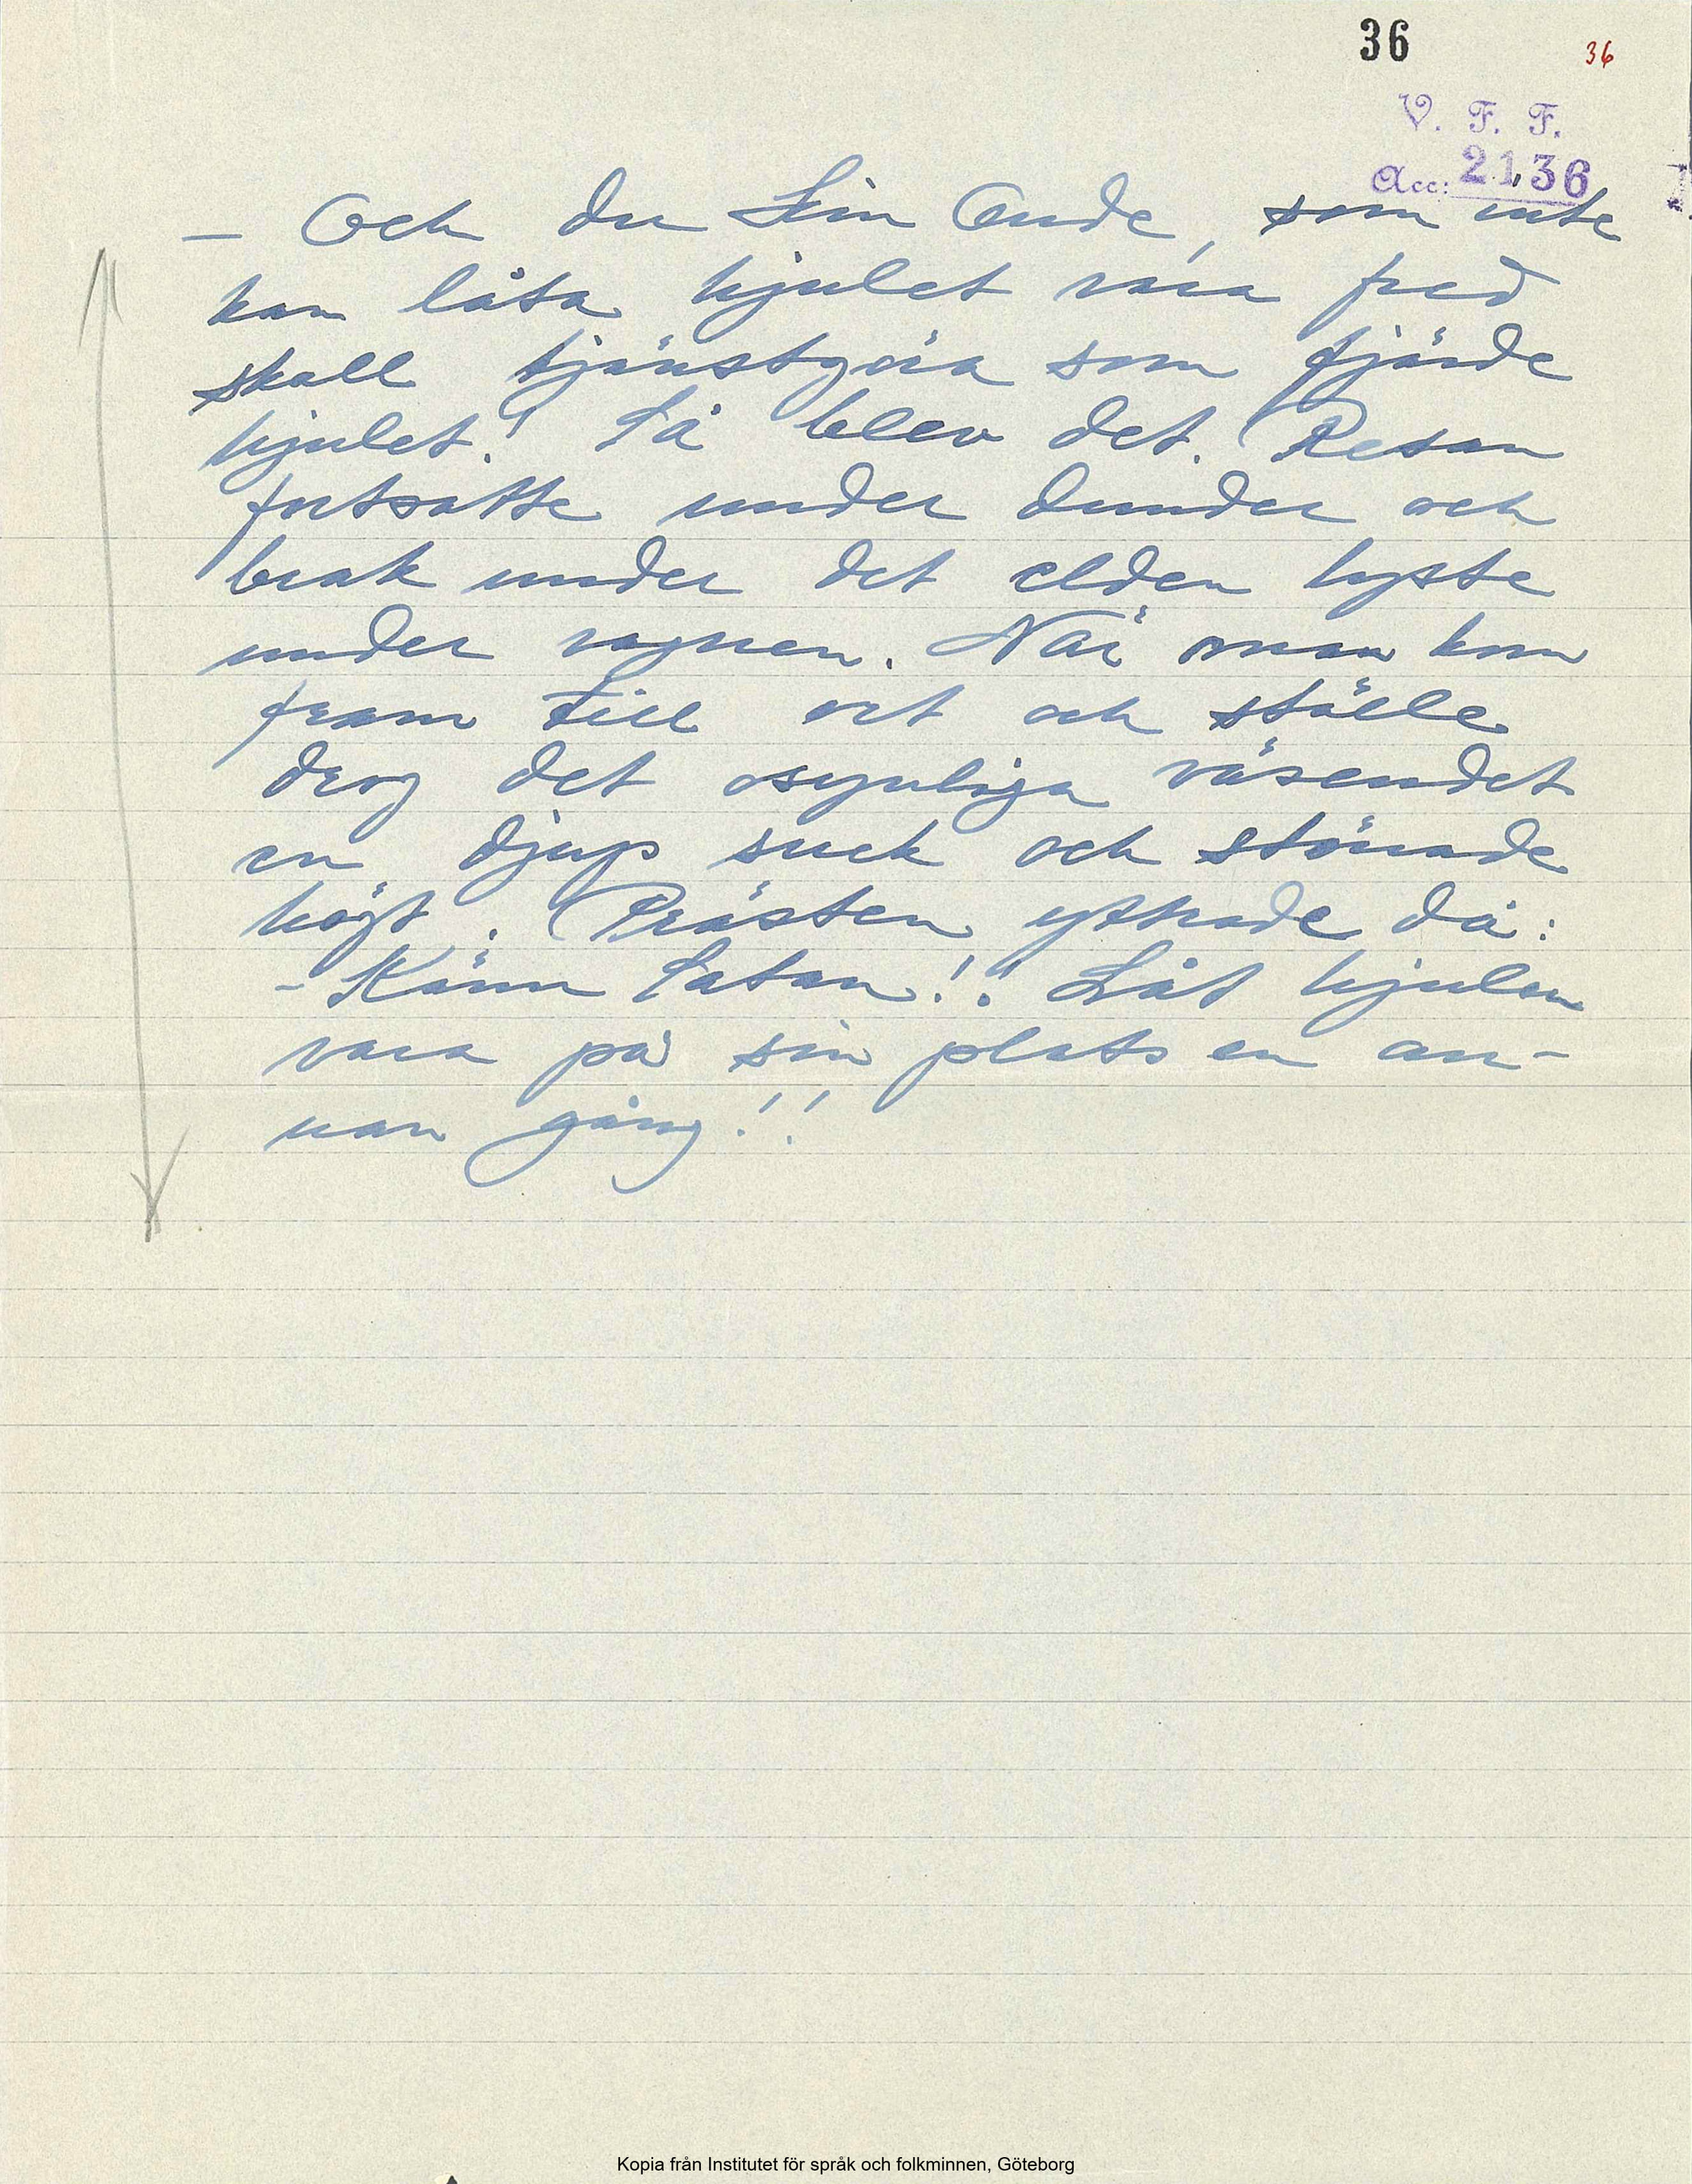 36
36
V. F. F.
Acc: 2136
- Och du Sin Onde, som inte
kan låta hjulet vara fred
skall tjänstgöra som fjärde
hjulet! Så blev det. Resan
fortsatte under dunder och
brak under det elden lyste
under vagnen. När man kom
fram till ort och ställe
drog det osynliga väsendet
en djup suck och stönade
högt. Prästen yttrade då:
- Känn Satan!! Låt hjulen
vara på sin plats en an-
nan gång!!
Kopia från Institutet för språk och folkminnen, Göteborg